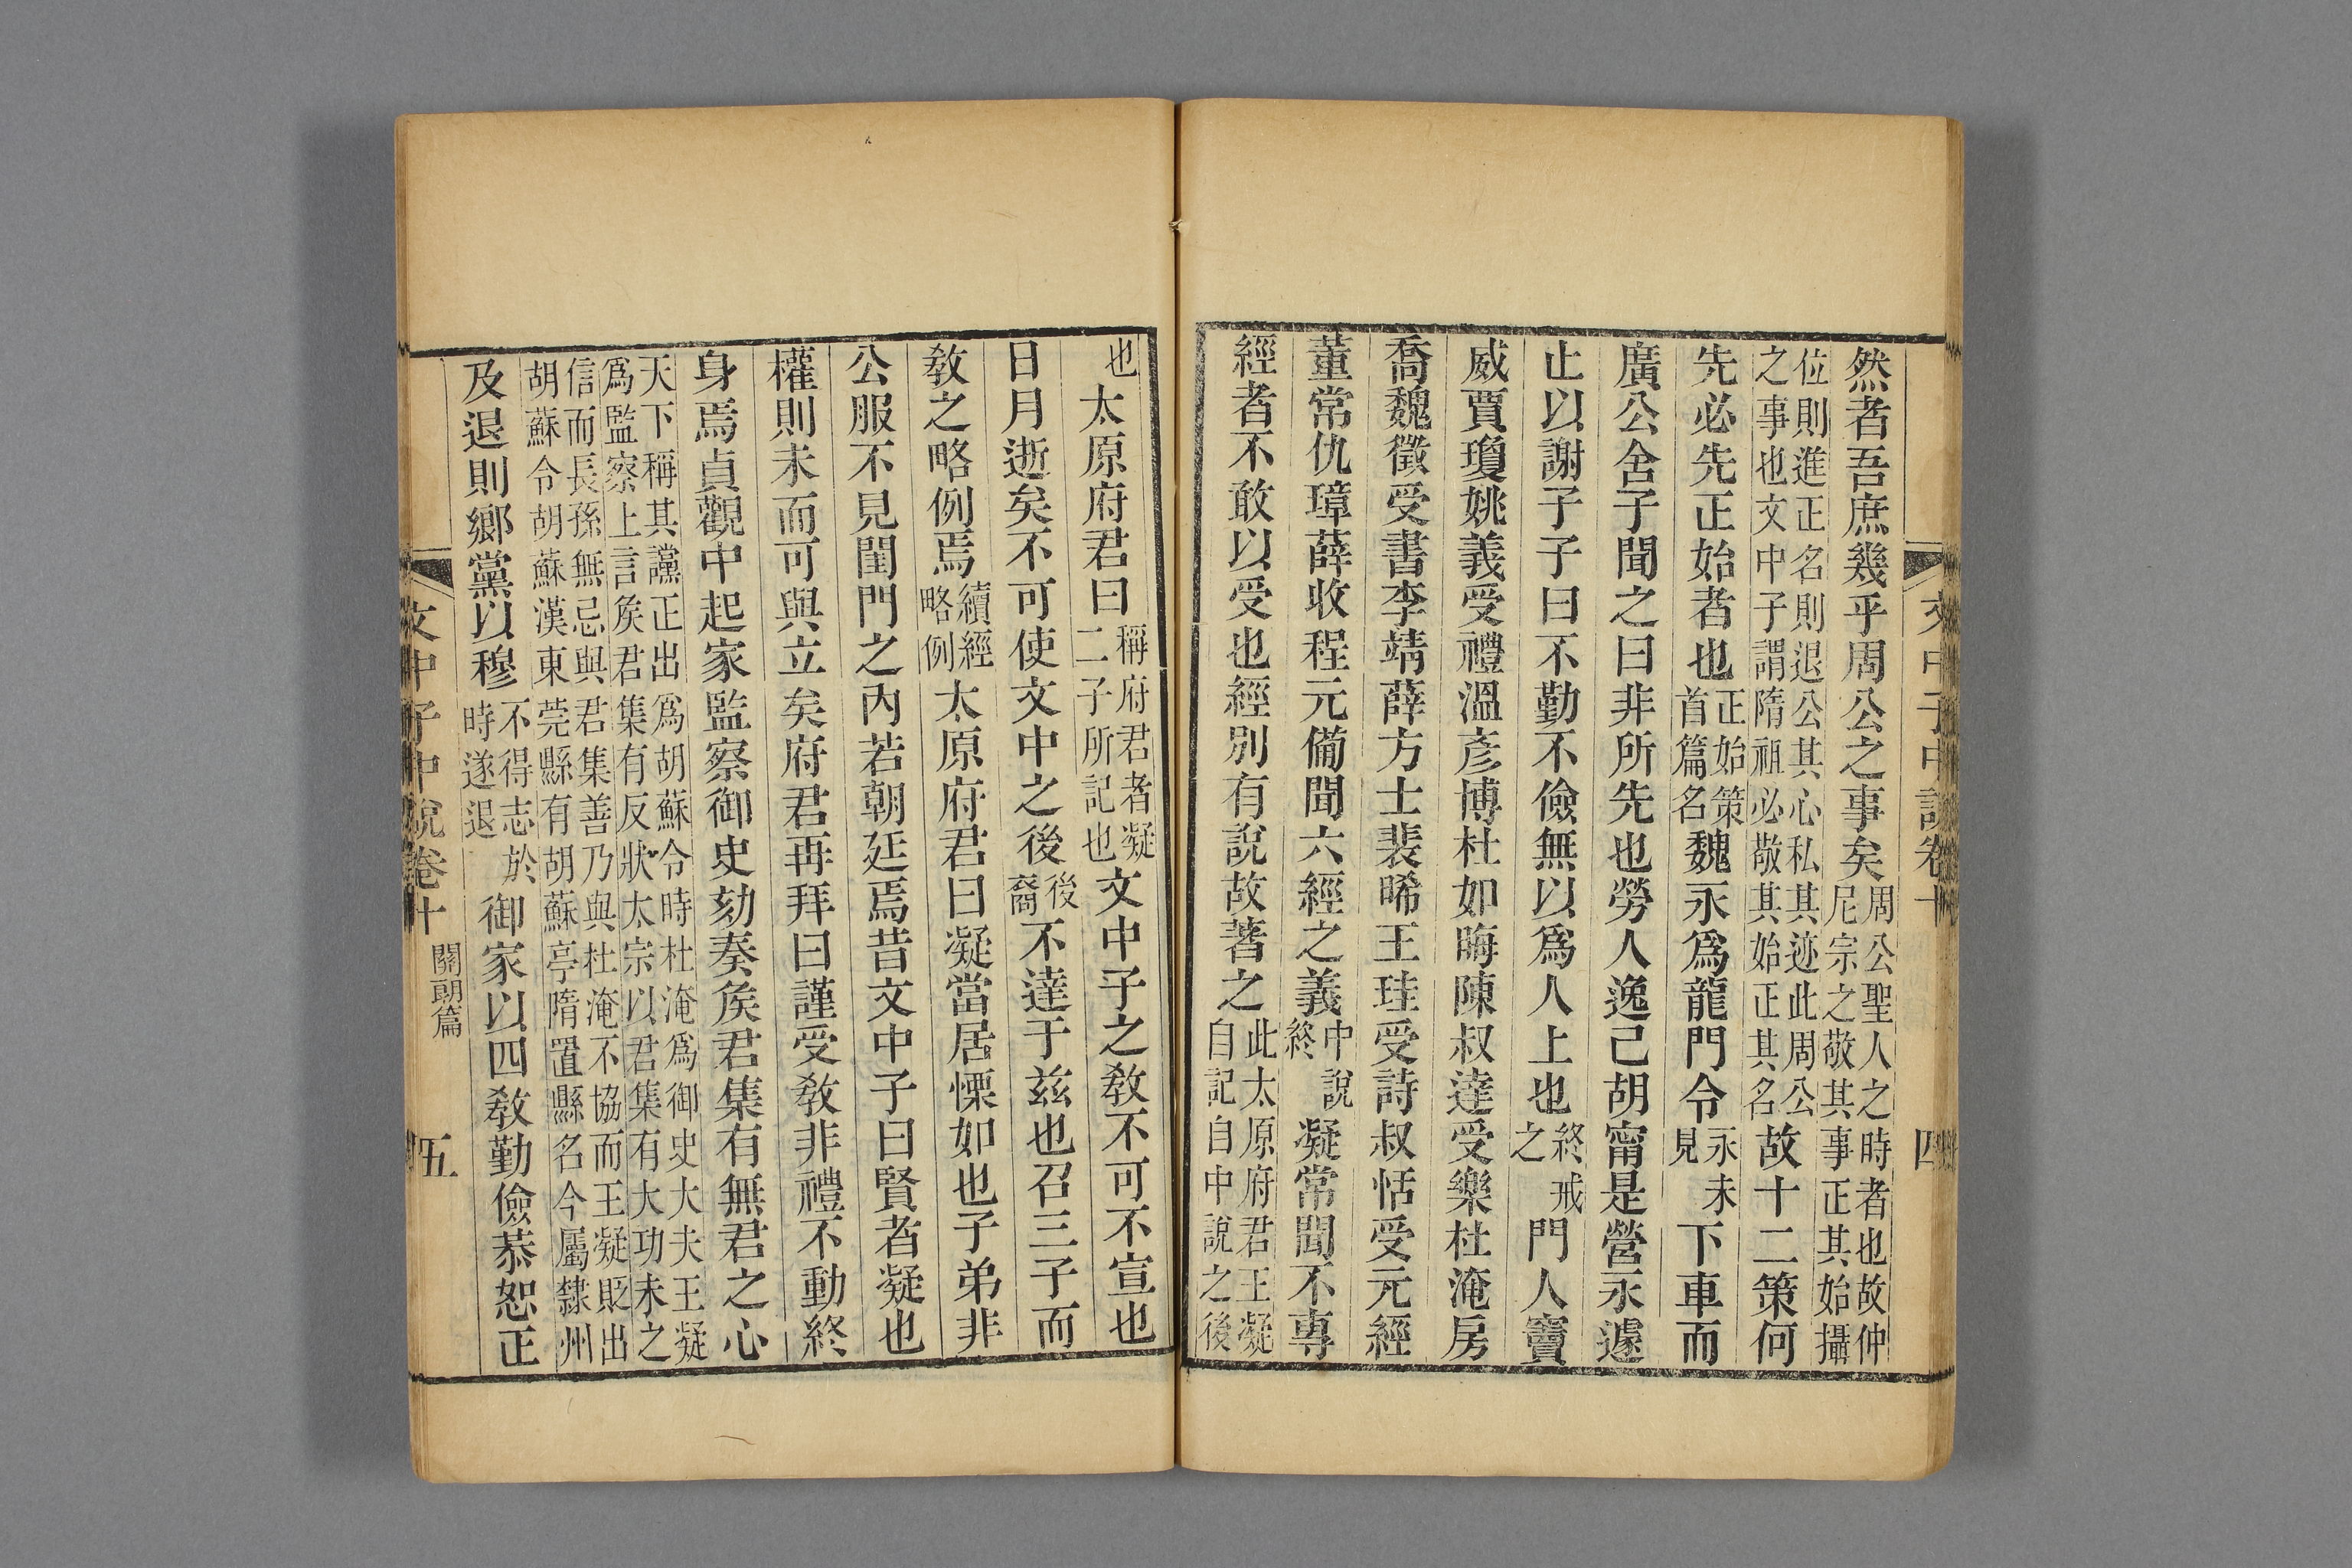 文中子中說卷十 四
然者吾庶幾乎周公之事矣周公聖人之時者也故仲尼宗之敬其事正其始攝
位則進正名則退公其心私其迹此周公之事也文中子謂隋祖必敬其始正其名故十二策何
先必先正始者也正始策首篇名魏永爲龍門令永未見下車而
廣公舍子聞之曰非所先也勞人逸己胡甯是營永遽
止以謝子子曰不勤不儉無以爲人上也終戒之門人竇
威賈瓊姚義受禮溫彥博杜如晦陳叔達受樂杜淹房
喬魏徵受書李靖薛方士裴晞王珪受詩叔恬受元經
董常仇璋薛收程元備聞六經之義中說終凝常聞不專
經者不敢以受也經別有說故著之此太原府君王凝自記自中說之後
也太原府君曰稱府君者凝二子所記也文中子之敎不可不宣也
日月逝矣不可使文中之後後裔不達于兹也召三子而
敎之略例焉續經略例太原府君曰凝當居慄如也子弟非
公服不見閨門之內若朝廷焉昔文中子曰賢者凝也
權則未而可與立矣府君再拜曰謹受敎非禮不動終
身焉貞觀中起家監察御史劾奏矦君集有無君之心
天下稱其讜正出爲胡蘇令時杜淹爲御史大夫王凝爲監察上言矦君集有反狀太宗以君集有大功未之
信而長孫無忌與君集善乃與杜淹不協而王凝貶出胡蘇令胡蘇漢東莞縣有胡蘇亭隋置縣名今屬隸州
及退則鄉黨以穆不得志於時遂退御家以四敎勤儉恭恕正
文中子中說卷十 關朗篇 五